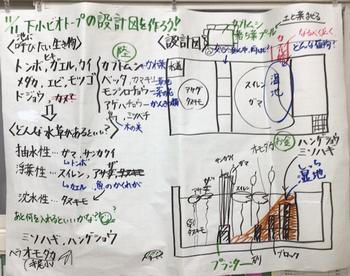 下水ビオトープの設計図を作ろう!!
池に
〈呼びたい生き物〉
トンボ、ガエル、ケイ
メダカ、エビ、モツゴ
ドジョウ、カメ
陸
カブトムシ
バッタ、カマキリ
モンシロチョウ
アゲハチョウ
ミツバチ
木の実
〈どんな水草があるといい?〉
抽水性…ガマ、サンカクイ
トンボ
浮葉性…スイレン、アサザ
カエル、魚のかくれが
沈水性…タヌキモ
あと何を入れるといいかな?
ミソハギ、ハンゲショウ
オモダカ
〈設計図〉
カブトムシ
幼虫プール
水道
アサザ
タヌキモ
スイレン
ガマ
湿地
土と葉をほる
なるべく近く
どんな植物?
オモダカ
ハンゲショウ
ミソハギ
しっち
湿地
サンカクイ
アサザ
スイレン
ガマ
タヌキモ
プランター
砂
ブロック